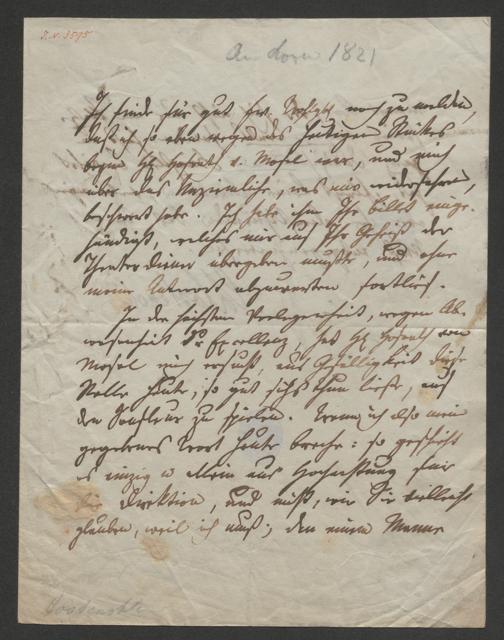 I.N. 3595
An dorn 1821
Ich finde für gut Ew. noch zu melden,
daß ich so eben wegen des heutigen Stückes
beym H: Hofrath v. Mosel war, und mich
über das Unziemliche, was mir widerfahren,
beschwert habe. Ich habe ihm Ihr Billet einge-
händigt, welches mir auf Ihr Geheiß der
Theaterdiener übergeben mußte, und ohne
meine Antwort abzuwarten fortlief.
In der höchsten Verlegenheit, wegen Ab-
wesenheit Sr Excellenz, hat H: Hofrath von
Mosel mich ersucht, aus Gefälligkeit diese
Rolle heute, so gut sichs thun ließe, auf
den Souffleur zu spielen. Wenn ich also mein
gegebenes Wort heute breche: so geschieht
es einzig u allein aus Hochachtung für
die Direktion, und nicht, wie Sie vielleicht
glauben, weil ich muß; denn einem Manne